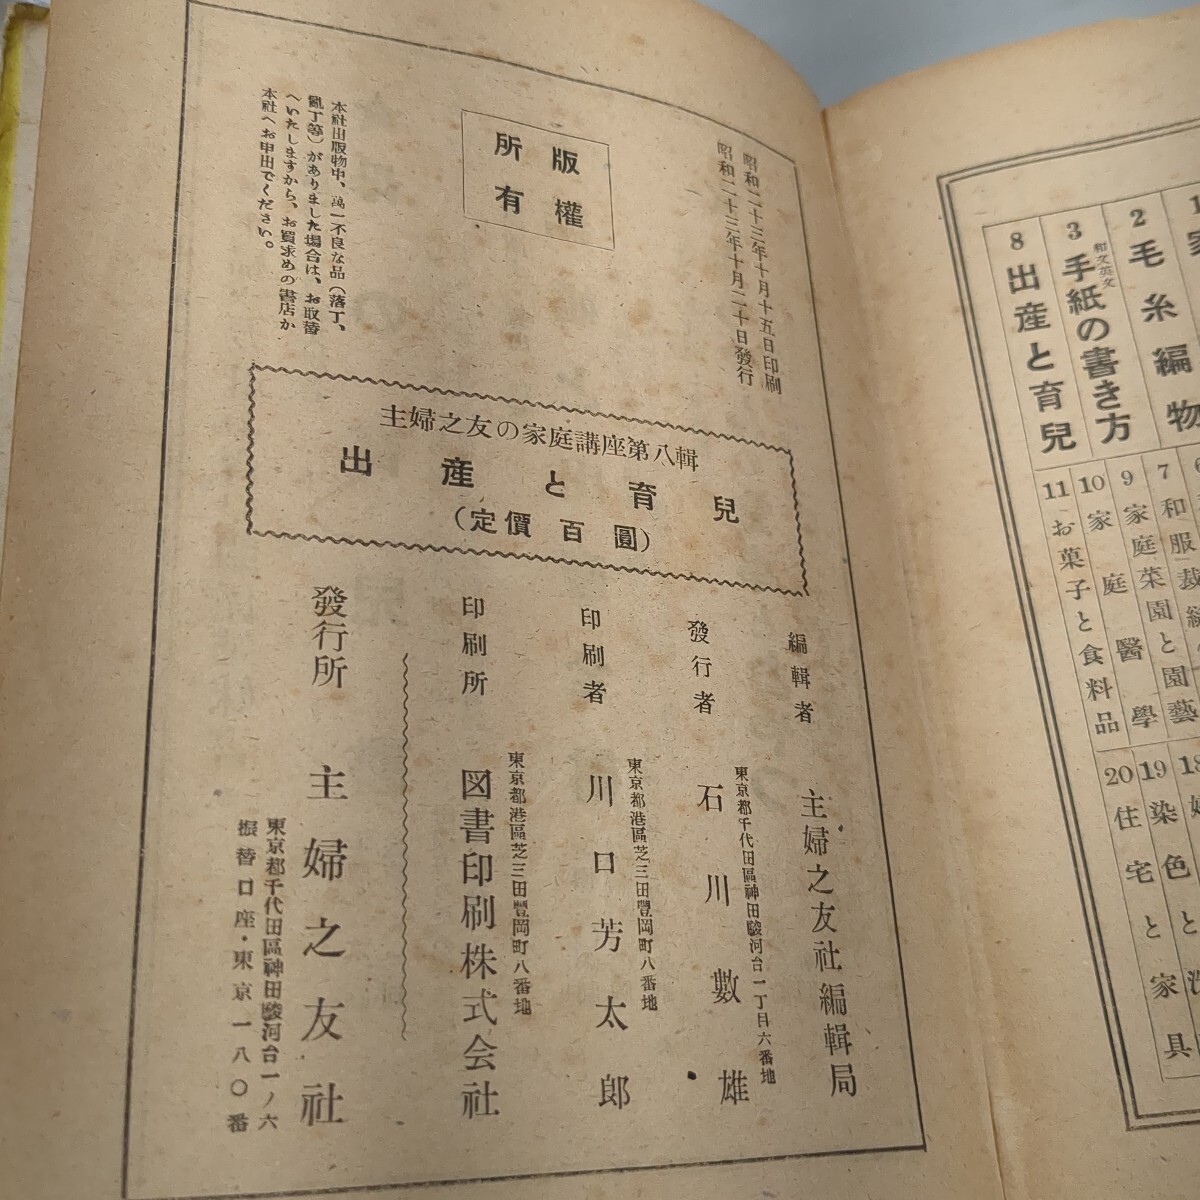 昭和二十三年十月十五日印刷
昭和二十三年十月二十日發行
版權
所有
本社出版物中、萬一不良な品（落丁、
亂丁等）がありました場合は、お取替
へいたしますから、お買求めの書店か
本社へお申出でください。
主婦之友の家庭講座第八輯
出産と育兒
（定價 百圓）
編輯者 主婦之友社編輯局
東京都千代田區神田駿河台一丁目六番地
發行者 石川數雄
東京都港區芝三田豐岡町八番地
印刷者 川口芳太郎
東京都港區芝三田豐岡町八番地
印刷所 図書印刷株式会社
發行所 主婦之友社
東京都千代田區神田駿河台一ノ六
振替口座・東京一八〇番
1
2 毛糸編物
3 和文英文 手紙の書き方
8 出産と育兒
6
7 和服裁縫
9 家庭菜園と園藝
10 家庭醫學
11 お菓子と食料品
18
19 染色と
20 住宅と家具